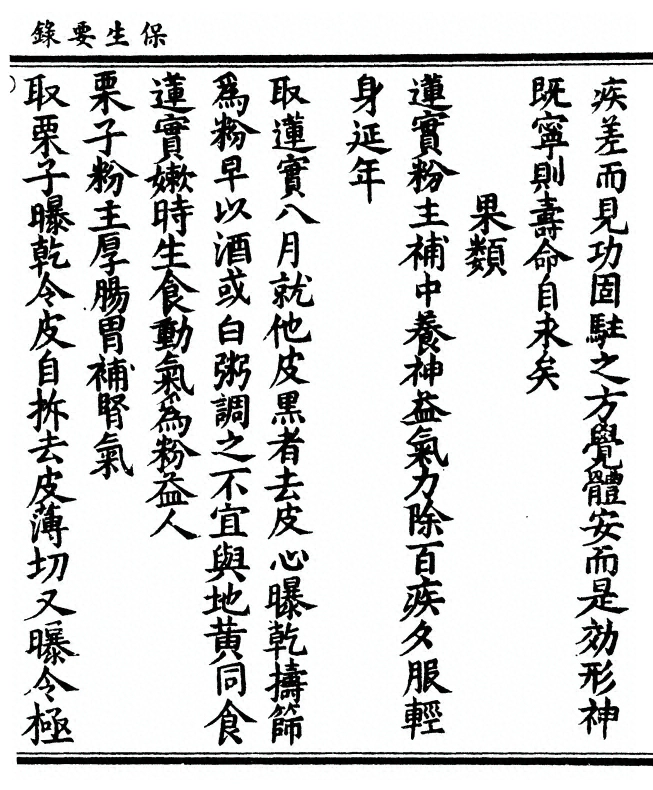 保生要錄
疾差而見功固駐之方覺體安而是効形神
既寧則壽命自永矣
果類
蓮實粉主補中養神益氣力除百疾久服輕
身延年
取蓮實八月就他皮黑者去皮心曝乾擣篩
爲粉早以酒或白粥調之不宜與地黄同食
蓮實嫰時生食動氣爲粉益人
栗子粉主厚腸胃補腎氣
取栗子曝乾令皮自拆去皮薄切又曝令極